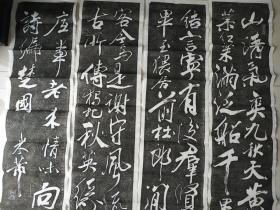 山清氣爽九秋天黄
菊紅茱滿泛船千里
結言寧有後羣賢
畢至猥居前杜郎閒
客今焉是謝守風流
古所傳獨把秋英緣
底事老來情味向
詩偏楚國米芾